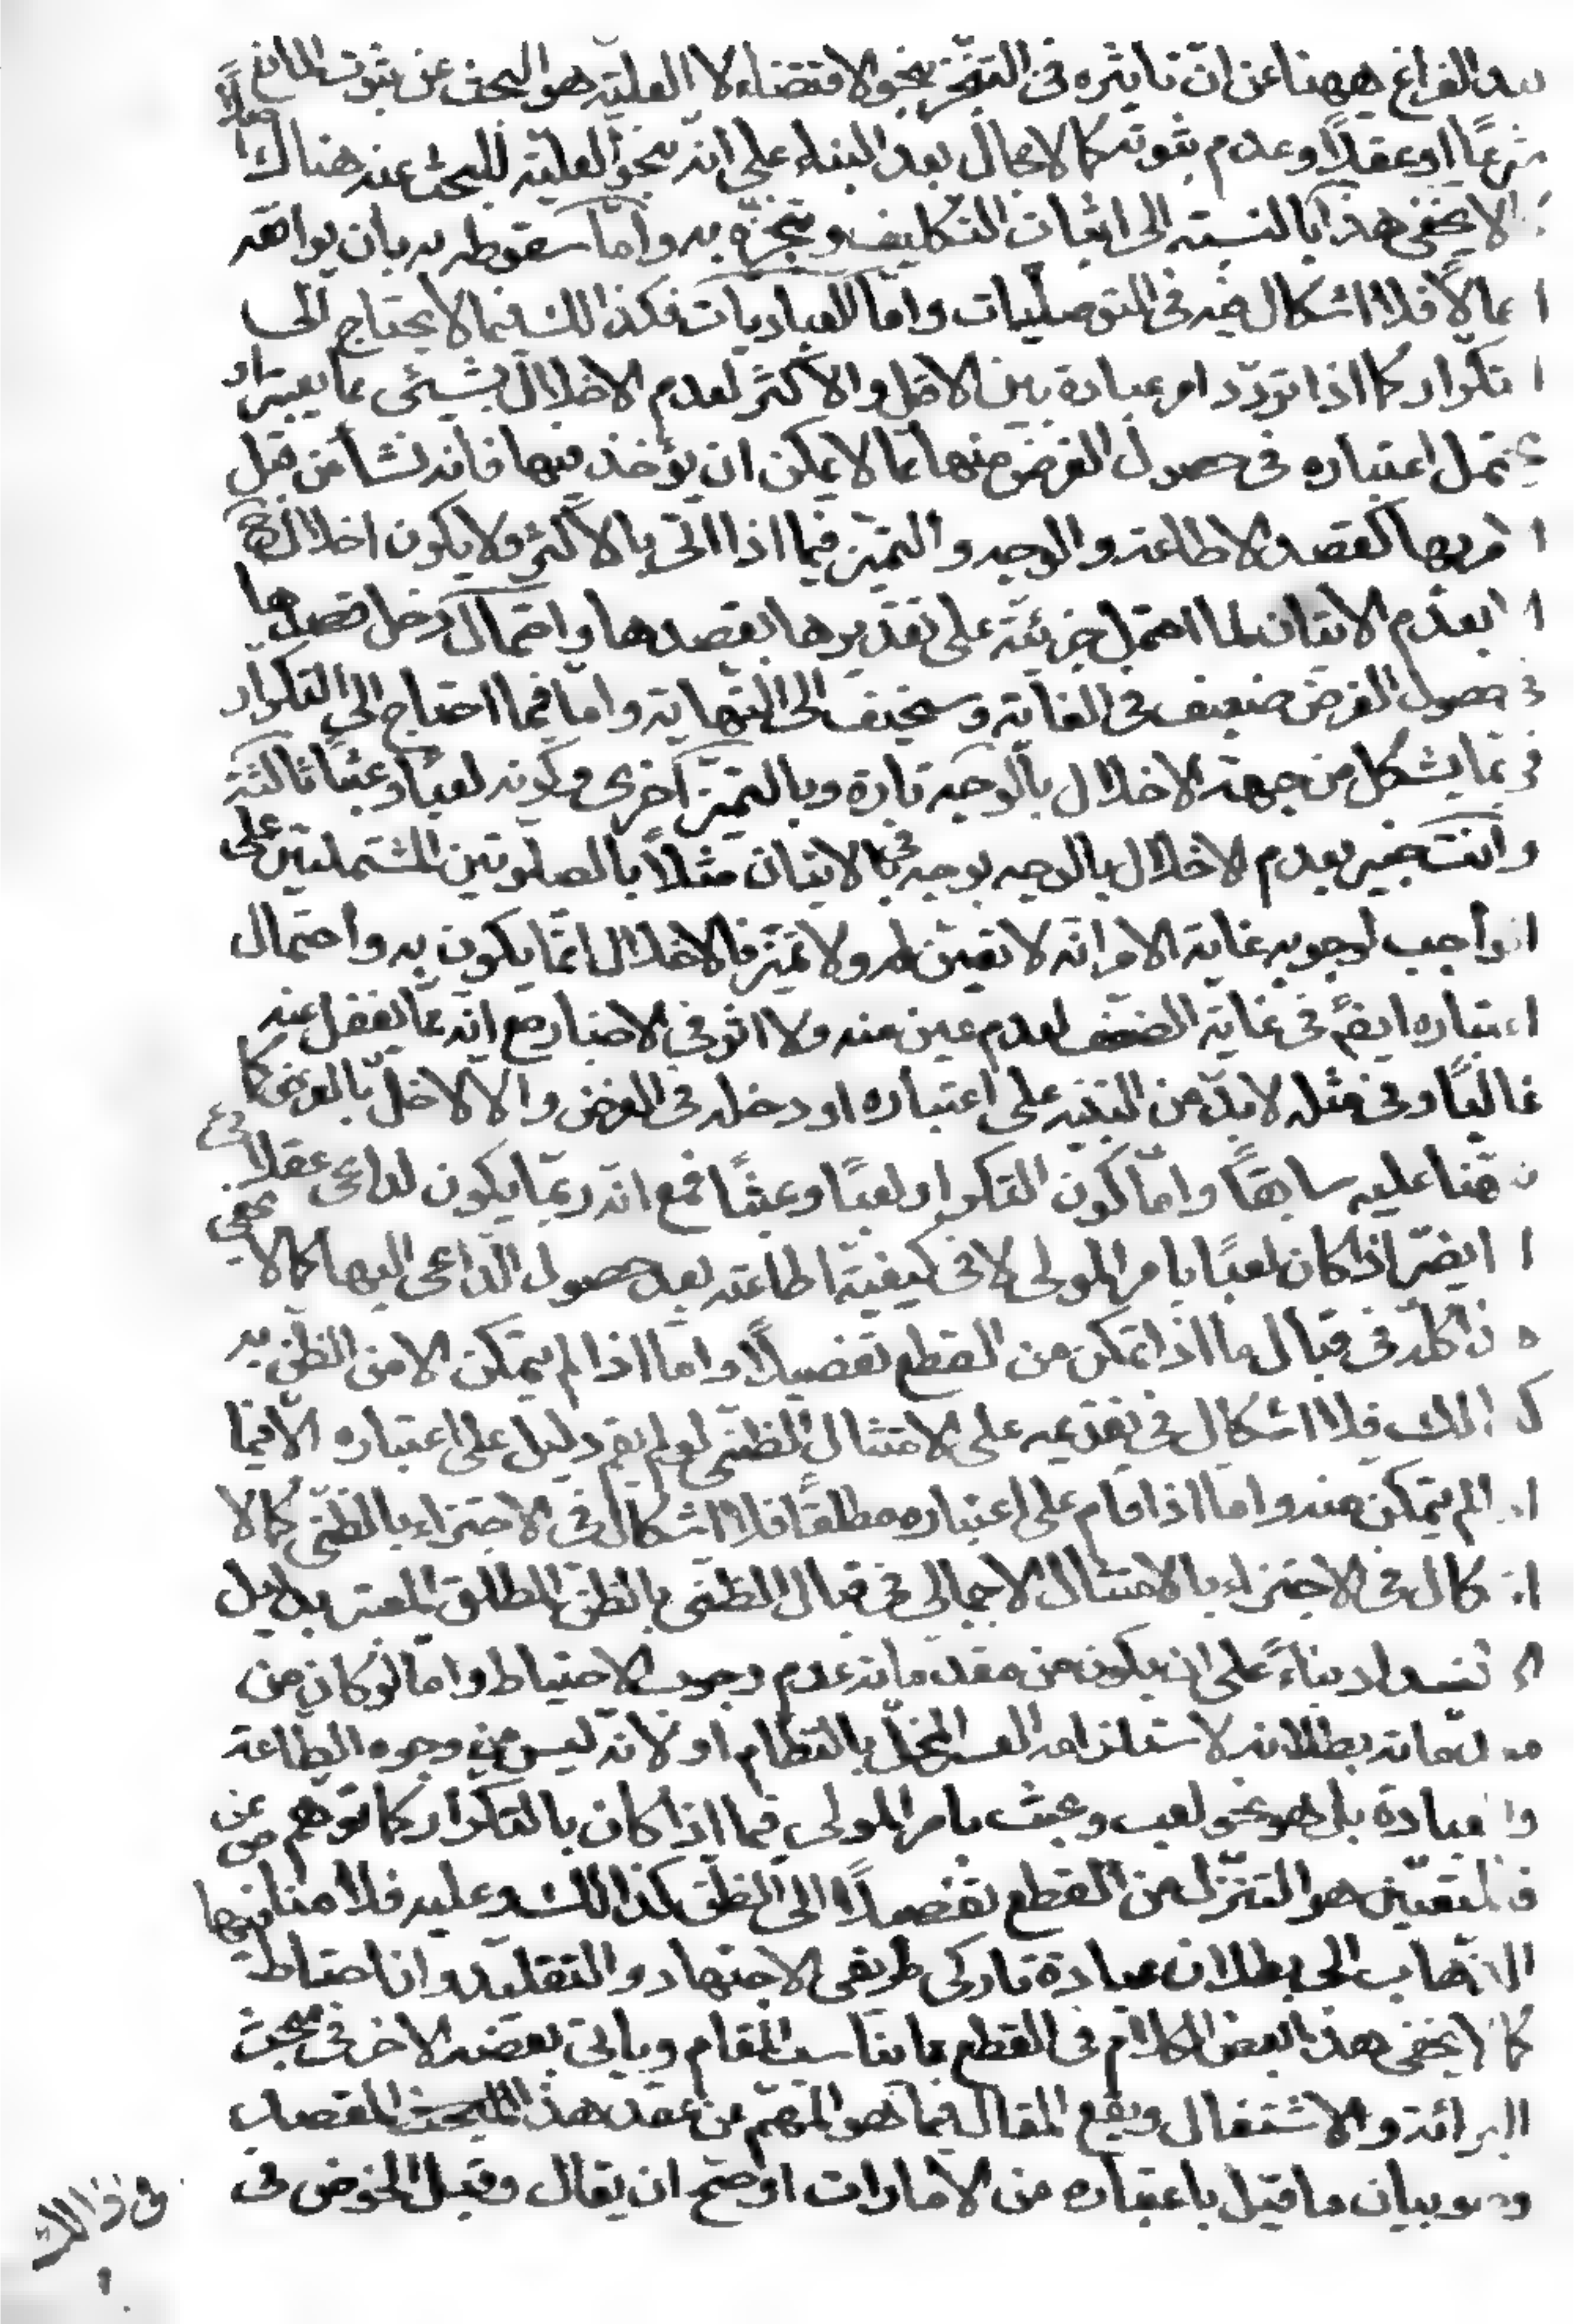 بعد الفراغ ههنا عن ان تاثيره فى التنجز بنحو الاقتضاء لا العلية هو البحث عن ثبوت المانع
شرعًا او عقلًا و عدم ثبوته كما لا مجال بعد البناء على انه بنحو العلية للبحث عنه هناك اصلًا
كما لا يخفى هذا بالنسبة الى اثبات التكليف و تنجزه به و اما سقوطه به بان يوافقه
اجمالًا فلا اشكال فيه فى التوصليات و اما العباديات فكذالك فيما لا يحتاج الى
التكرار كما اذا تردد امر عبادة بين الاقل و الاكثر لعدم الاخلال بشيئى مما يعتبر او
يحتمل اعتباره فى حصول الغرض منها مما لا يمكن ان يؤخذ فيها فانه نشأ من قبل
الامر بها كقصد الاطاعة و الوجه و التميز فيما اذا اتى بالاكثر و لا يكون اخلال ح
الا بعدم الاتيان لما احتمل جزئيته على تقديرها بقصدها و احتمال دخل قصدها
فى حصول الغرض ضعيف فى الغاية و سخيف الى النهاية و اما فيما احتاج الى التكرار
فربما يشكل من جهة الاخلال بالوجه تارة و بالتميز اخرى و كونه لعبًا و عبثًا ثالثة
و انت خبير بعدم الاخلال بالوجه بوجه فى الاتيان مثلًا بالصلوتين المشتملتين على
الواجب لوجوبه غاية الامر انه لا تعين له و لا تميز فالاخلال انما يكون به و احتمال
اعتباره ايضً فى غاية الضعف لعدم عين منه و لا اثر فى الاخبار مع انه مما يغفل عنه
غالبًا و فى مثله لا بد من التنبيه على اعتباره او دخله فى الغرض و الا لاخل بالغرض كما
نبهنا عليه سابقًا و اما كون التكرار لعبًا و عبثًا فمع انه ربما يكون لداعى عقلائى
انما يضر اذا كان لعبًا بامر المولى لا فى كيفية اطاعته بعد حصول الداعى اليها كما لا يخفى
هذا كله فى قبال ما اذا تمكن من القطع تفضيلًا و اما اذا لم يتمكن الا من الظن به
كذالك فلا اشكال فى تقديمه على الامتثال الظنى لو لم يقم دليل على اعتباره الا فيما
اذا لم يتمكن منه و اما اذا قام على اعتباره مطلقًا فلا اشكال فى الاجتزاء بالظنى كما لا
اشكال فى الاجتزاء بالامتثال الاجمالى فى قبال الظنى بالظن المطلق المعتبر بدليل
الانسداد بناءً على ان يكون من مقدماته عدم وجوب الاحتياط و اما لو كان من
مقدماته بطلانه لاستلزامه العسر المخل بالنظام او لانه ليس من وجوه الطاعة
و العبادة بل هو نحو لعب و عبث بامر المولى فيما اذا كان بالتكرار كما توهم
فالمتعين هو التنزل من القطع تفصيلًا الى الظن كذالك و عليه فلا مناص عن
الذهاب الى بطلان عبادة تاركى طريقى الاجتهاد و التقليد و ان احتاط فيها
كما لا يخفى هذا بعض الكلام فى القطع مما يناسب المقام و ياتى بعضه الاخر فى مبحث
البرائة و الاشتغال و يقع المقال فيما هو المهم من عقد هذا المقصد
و هو بيان ما قيل باعتباره من الامارات او صح ان يقال و قبل الخوض فى
فى ذالك